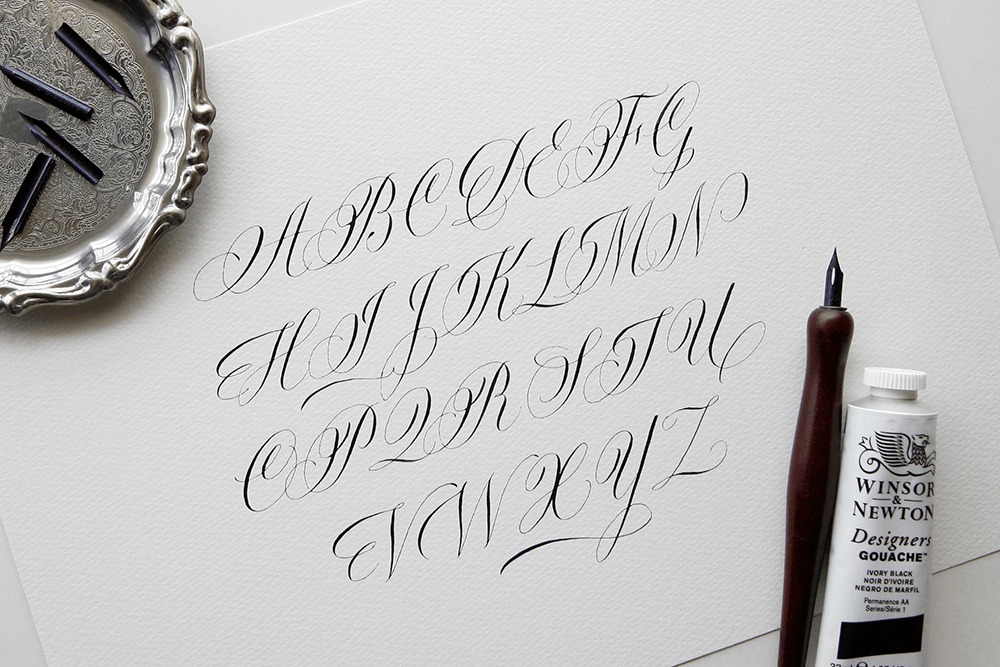 ABCDEFG
HIJKLMN
OPQRSTU
VWXYZ
WINSOR
&
NEWTON
Designers
GOUACHE™
IVORY BLACK
NOIR D'IVOIRE
NEGRO DE MARFIL
Permanence AA
Series/Série 1